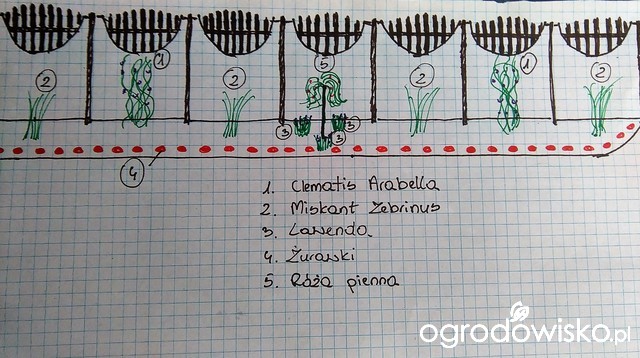 1 1
2 2 5 2 2
3 3
3
4
1. Clematis Arabella
2. Miskant Zebrinus
3. Lawenda
4. Żurawki
5. Róża pienna
ogrodowisko.pl